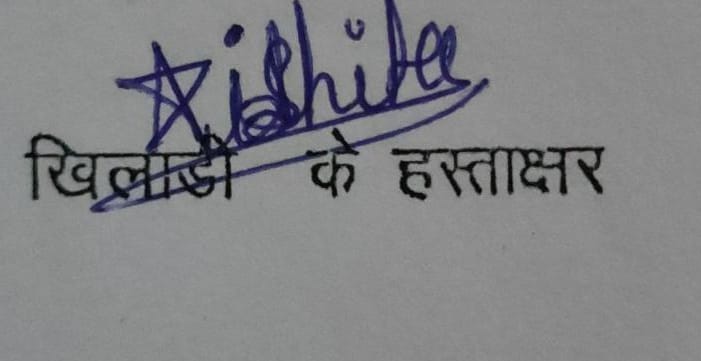 ishita
खिलाडी के हस्ताक्षर